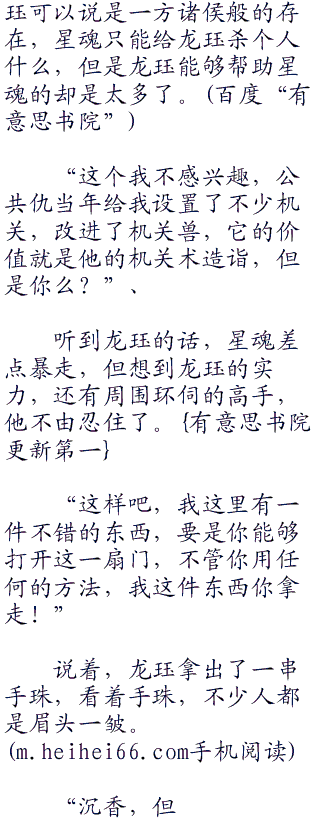 珏可以说是一方诸侯般的存
在，星魂只能给龙珏杀个人
什么，但是龙珏能够帮助星
魂的却是太多了。(百度“有
意思书院”)
“这个我不感兴趣，公
共仇当年给我设置了不少机
关，改进了机关兽，它的价
值就是他的机关术造诣，但
是你么？”、
听到龙珏的话，星魂差
点暴走，但想到龙珏的实
力，还有周围环伺的高手，
他不由忍住了。{有意思书院
更新第一}
“这样吧，我这里有一
件不错的东西，要是你能够
打开这一扇门，不管你用任
何的方法，我这件东西你拿
走！”
说着，龙珏拿出了一串
手珠，看着手珠，不少人都
是眉头一皱。
(m.heihei66.com手机阅读)
“沉香，但